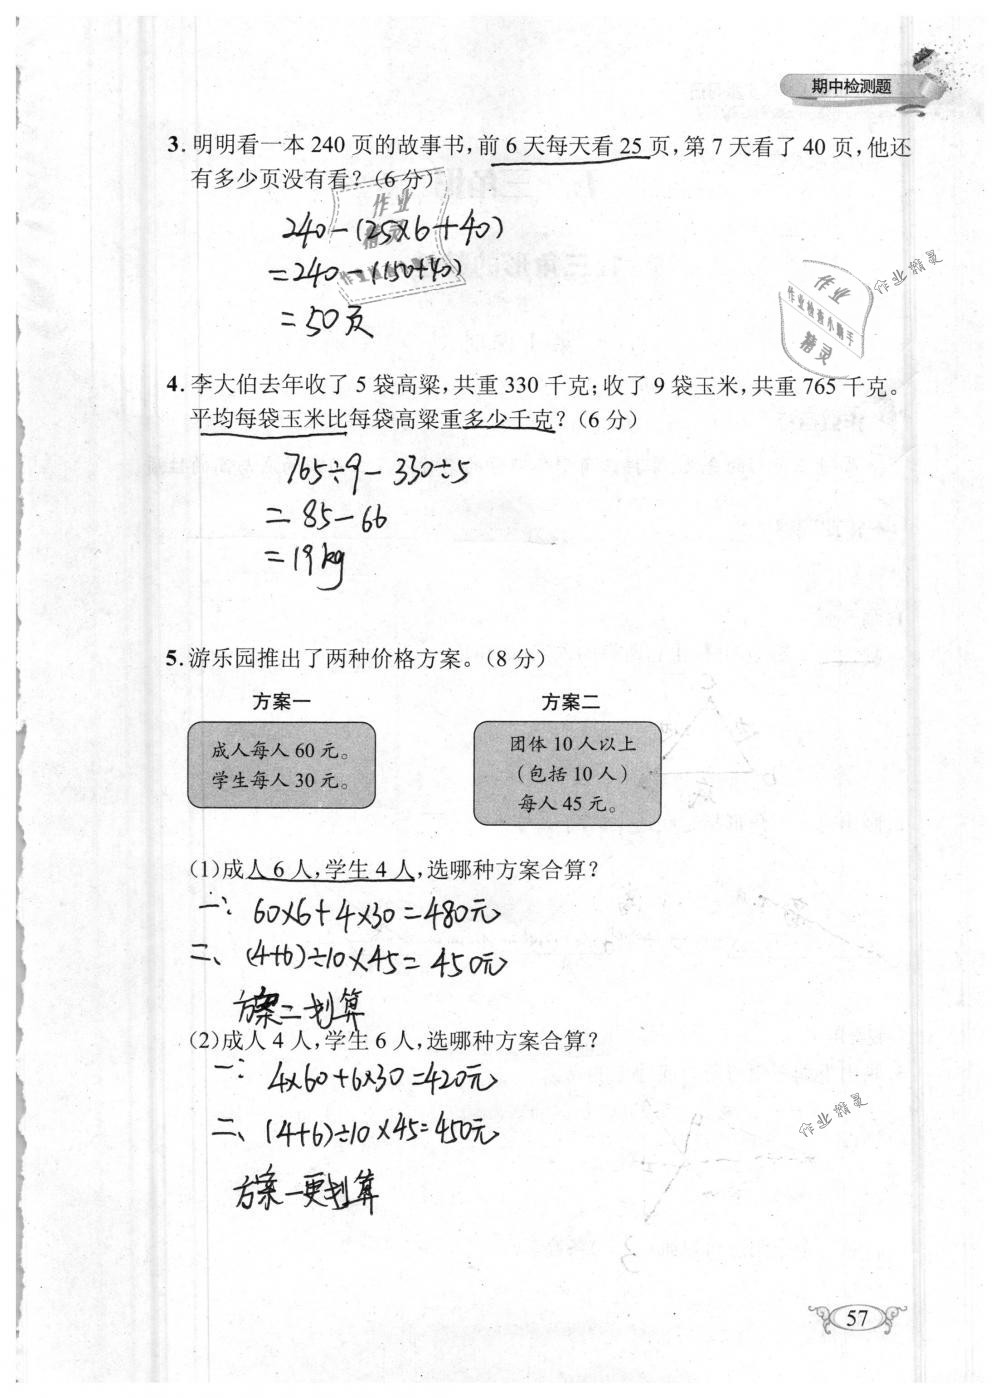 期中检测题
3. 明明看一本 240 页的故事书,前 6 天每天看 25 页,第 7 天看了 40 页,他还
有多少页没有看?(6 分)
240-(25×6+40)
=240-(150+40)
=50页
作业
精灵
作业检查小助手
作业
作业检查小助手
精灵
作业精灵
4. 李大伯去年收了 5 袋高粱,共重 330 千克;收了 9 袋玉米,共重 765 千克。
平均每袋玉米比每袋高粱重多少千克?(6 分)
765÷9-330÷5
=85-66
=19kg
5. 游乐园推出了两种价格方案。(8 分)
方案一
成人每人 60 元。
学生每人 30 元。
方案二
团体 10 人以上
(包括 10 人)
每人 45 元。
(1)成人 6 人,学生 4 人,选哪种方案合算?
一: 60×6+4×30=480元
二、(4+6)÷10×45=450元
方案二划算
(2)成人 4 人,学生 6 人,选哪种方案合算?
一: 4×60+6×30=420元
二、(4+6)÷10×45=450元
方案一更划算
作业精灵
57